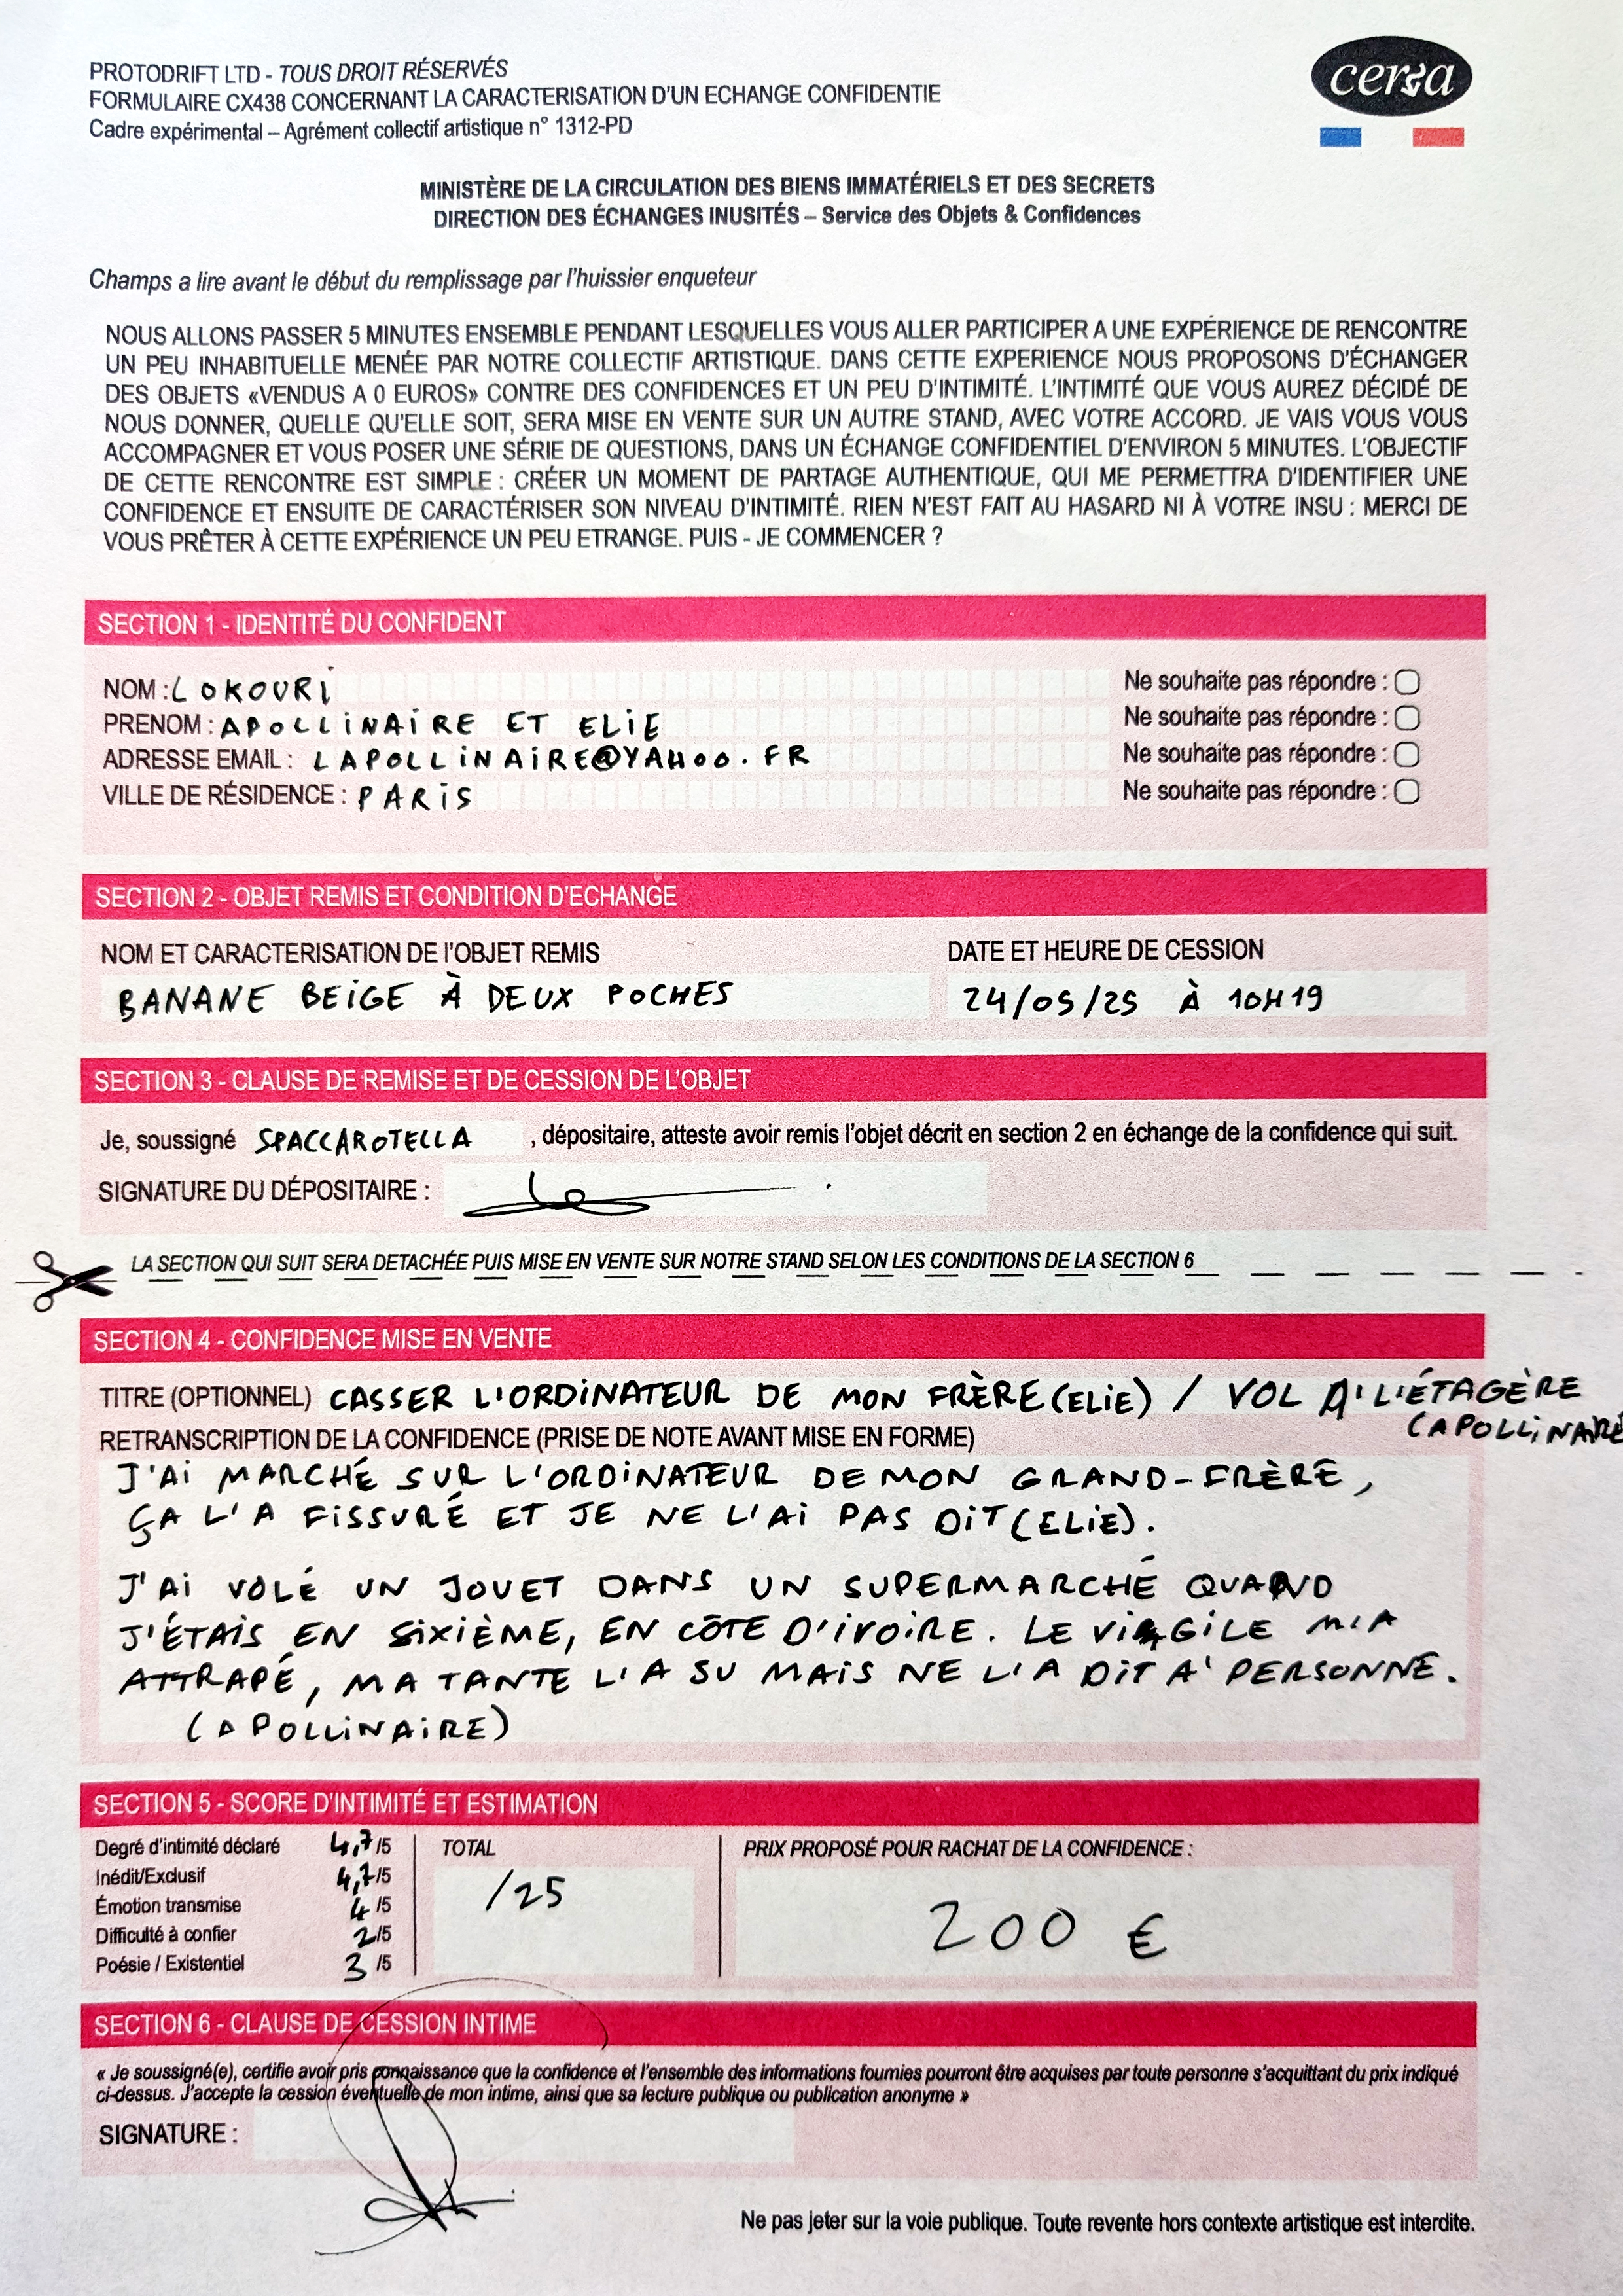 PROTODRIFT LTD - TOUS DROIT RÉSERVÉS
FORMULAIRE CX438 CONCERNANT LA CARACTERISATION D'UN ECHANGE CONFIDENTIE
Cadre expérimental – Agrément collectif artistique n° 1312-PD
cerfa
MINISTÈRE DE LA CIRCULATION DES BIENS IMMATÉRIELS ET DES SECRETS
DIRECTION DES ÉCHANGES INUSITÉS – Service des Objets & Confidences
Champs a lire avant le début du remplissage par l'huissier enqueteur
NOUS ALLONS PASSER 5 MINUTES ENSEMBLE PENDANT LESQUELLES VOUS ALLER PARTICIPER A UNE EXPÉRIENCE DE RENCONTRE
UN PEU INHABITUELLE MENÉE PAR NOTRE COLLECTIF ARTISTIQUE. DANS CETTE EXPERIENCE NOUS PROPOSONS D'ÉCHANGER
DES OBJETS «VENDUS A 0 EUROS» CONTRE DES CONFIDENCES ET UN PEU D'INTIMITÉ. L'INTIMITÉ QUE VOUS AUREZ DÉCIDÉ DE
NOUS DONNER, QUELLE QU'ELLE SOIT, SERA MISE EN VENTE SUR UN AUTRE STAND, AVEC VOTRE ACCORD. JE VAIS VOUS VOUS
ACCOMPAGNER ET VOUS POSER UNE SÉRIE DE QUESTIONS, DANS UN ÉCHANGE CONFIDENTIEL D'ENVIRON 5 MINUTES. L'OBJECTIF
DE CETTE RENCONTRE EST SIMPLE : CRÉER UN MOMENT DE PARTAGE AUTHENTIQUE, QUI ME PERMETTRA D'IDENTIFIER UNE
CONFIDENCE ET ENSUITE DE CARACTÉRISER SON NIVEAU D'INTIMITÉ. RIEN N'EST FAIT AU HASARD NI À VOTRE INSU : MERCI DE
VOUS PRÊTER À CETTE EXPÉRIENCE UN PEU ETRANGE. PUIS - JE COMMENCER ?
SECTION 1 - IDENTITÉ DU CONFIDENT
NOM : LOKOURI Ne souhaite pas répondre :
PRENOM : APOLLINAIRE ET ELIE Ne souhaite pas répondre :
ADRESSE EMAIL : LAPOLLINAIRE@YAHOO.FR Ne souhaite pas répondre :
VILLE DE RÉSIDENCE : PARIS Ne souhaite pas répondre :
SECTION 2 - OBJET REMIS ET CONDITION D'ECHANGE
NOM ET CARACTERISATION DE l'OBJET REMIS DATE ET HEURE DE CESSION
BANANE BEIGE À DEUX POCHES 24/05/25 À 10H19
SECTION 3 - CLAUSE DE REMISE ET DE CESSION DE L'OBJET
Je, soussigné SPACCAROTELLA , dépositaire, atteste avoir remis l'objet décrit en section 2 en échange de la confidence qui suit.
SIGNATURE DU DÉPOSITAIRE :
LA SECTION QUI SUIT SERA DETACHÉE PUIS MISE EN VENTE SUR NOTRE STAND SELON LES CONDITIONS DE LA SECTION 6
SECTION 4 - CONFIDENCE MISE EN VENTE
TITRE (OPTIONNEL) CASSER L'ORDINATEUR DE MON FRÈRE (ELIE) / VOL À L'ÉTAGÈRE
(APOLLINAIRE
RETRANSCRIPTION DE LA CONFIDENCE (PRISE DE NOTE AVANT MISE EN FORME)
J'AI MARCHÉ SUR L'ORDINATEUR DE MON GRAND-FRÈRE,
ÇA L'A FISSURÉ ET JE NE L'AI PAS DIT (ELIE).
J'AI VOLÉ UN JOUET DANS UN SUPERMARCHÉ QUAND
J'ÉTAIS EN SIXIÈME, EN CÔTE D'IVOIRE. LE VIGILE M'A
ATTRAPÉ, MA TANTE L'A SU MAIS NE L'A DIT A' PERSONNE.
(APOLLINAIRE)
SECTION 5 - SCORE D'INTIMITÉ ET ESTIMATION
Degré d'intimité déclaré 4,7/5 TOTAL PRIX PROPOSÉ POUR RACHAT DE LA CONFIDENCE :
Inédit/Exclusif 4,7/5
Émotion transmise 4/5 /25 200 €
Difficulté à confier 2/5
Poésie / Existentiel 3/5
SECTION 6 - CLAUSE DE CESSION INTIME
« Je soussigné(e), certifie avoir pris connaissance que la confidence et l'ensemble des informations fournies pourront être acquises par toute personne s'acquittant du prix indiqué
ci-dessus. J'accepte la cession éventuelle de mon intime, ainsi que sa lecture publique ou publication anonyme »
SIGNATURE :
Ne pas jeter sur la voie publique. Toute revente hors contexte artistique est interdite.